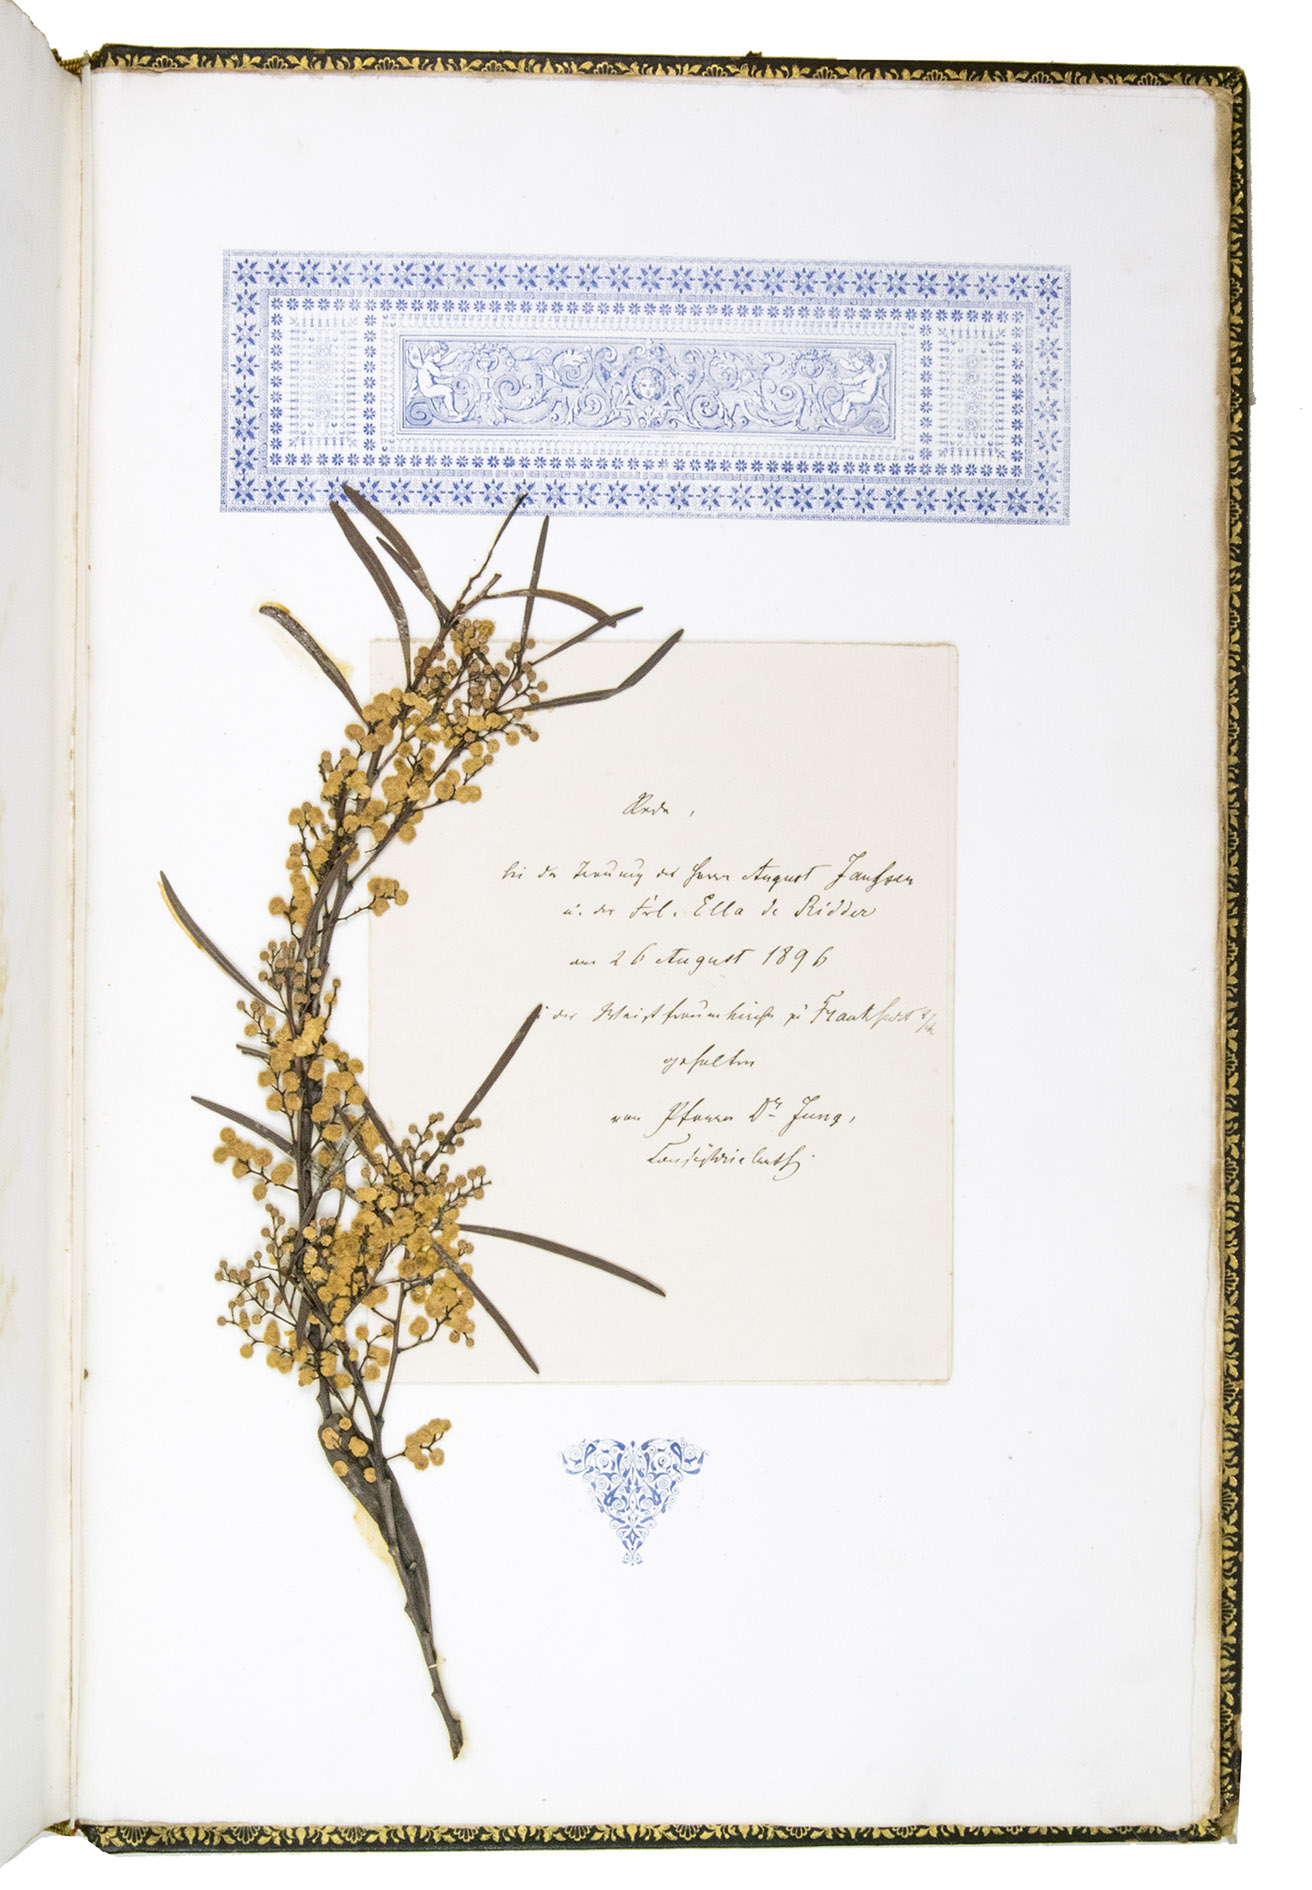 Rede,
bei der Trauung des Herrn August Janssen
u. der Frl. Ella de Ridder
am 26 August 1896
in der Weissfrauenkirche zu Frankfurt a/M
gehalten
von Pfarrer Dr Jung,